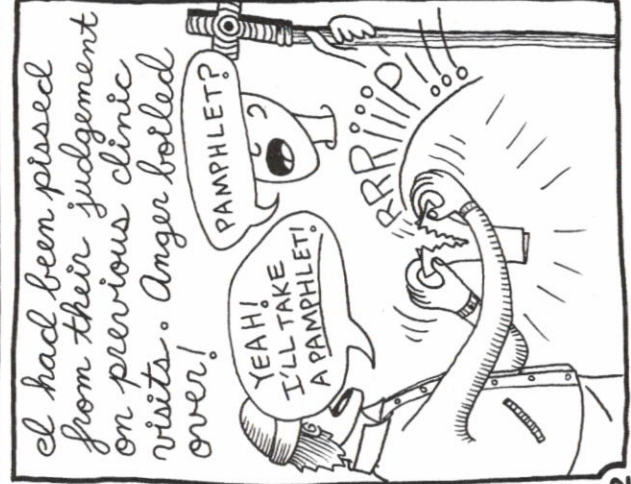 I had been pissed
from their judgement
on previous clinic
visits. Anger boiled
over!
PAMPHLET?
YEAH!
I'LL TAKE
A PAMPHLET!
RRRiiiP!!!